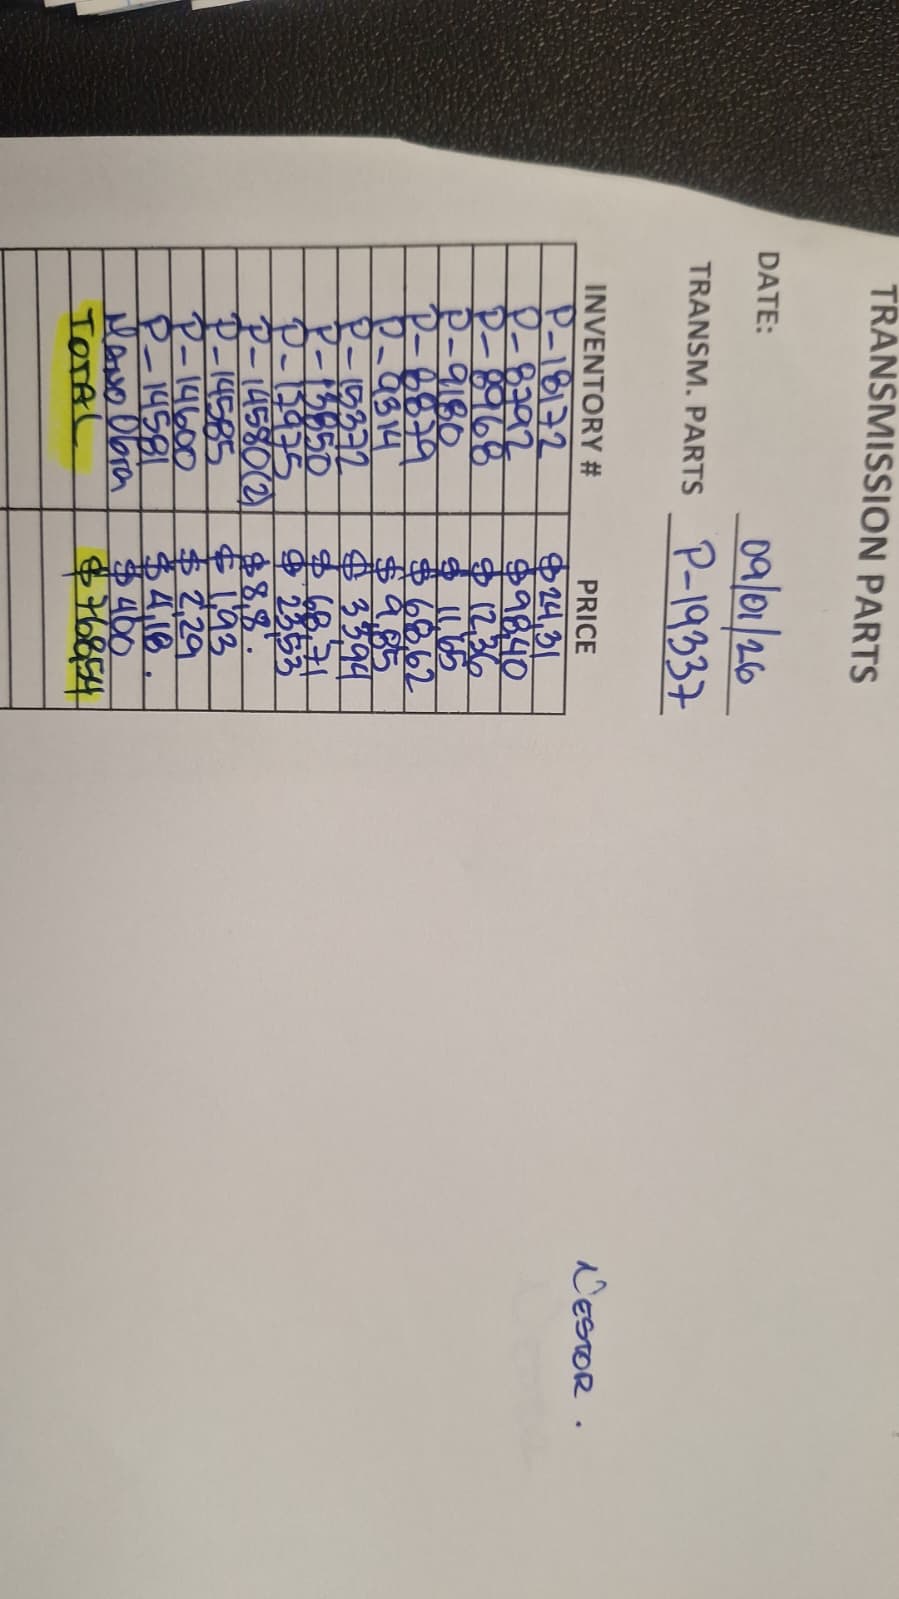 TRANSMISSION PARTS
DATE: 09/01/26
TRANSM. PARTS P-19337
INVENTORY # PRICE
P-18172 $24,31
P-8792 $98,40
P-8968 $12,36
P-9180 $11,65
P-8879 $68,62
P-9314 $9,85
P-15372 $33,94
P-13850 $68,71
P-13975 $23,53
P-14580(2) $8,8.
P-14585 $1,93
P-14600 $2,29
P-14581 $4,18.
Mano Obra $400
TOTAL $768,54
NESTOR.